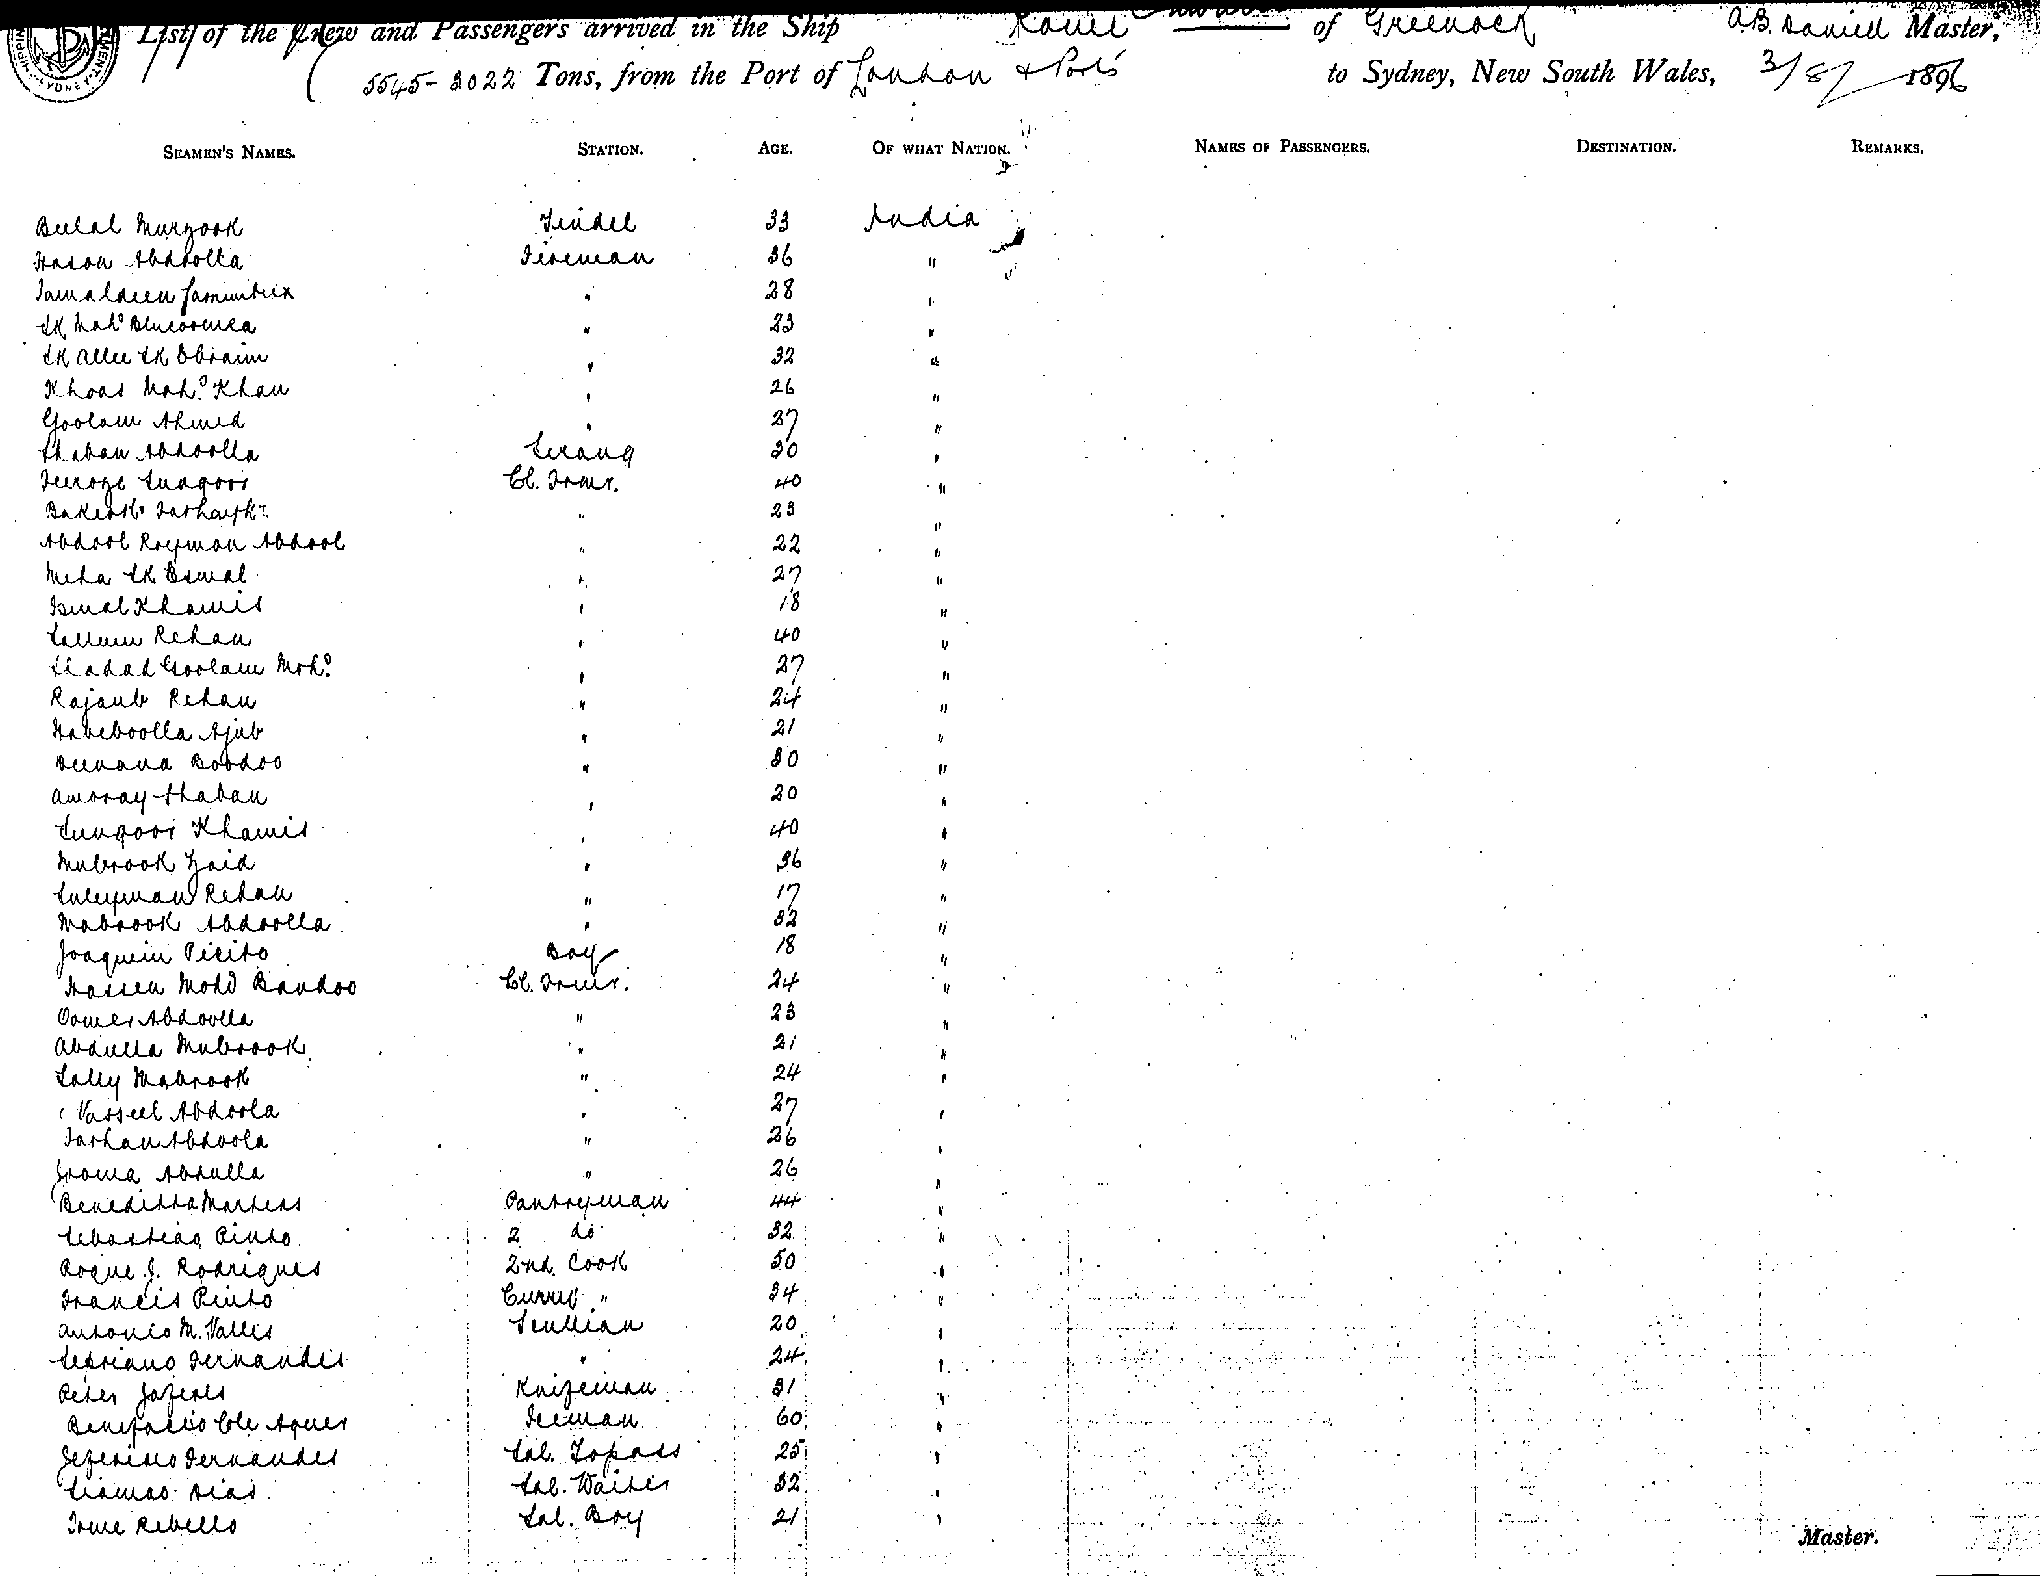 List of the Crew and Passengers arrived in the Ship of Greenock A.B. Daniell Master,
5545-3022 Tons, from the Port of London & Ports to Sydney, New South Wales, 3/8/ 1896
SEAMEN'S NAMES. STATION. AGE. OF WHAT NATION. NAMES OF PASSENGERS. DESTINATION. REMARKS.
Belal Murzook Tindel 33 India
Hason Abdoolla Fireman 36 "
Jamaldeen " 28 "
Sk Mahd " 23 "
Sk Allee Sk Ebraim " 32 "
Khoas Mahd Khan " 26 "
Goolam Ahmed " 27 "
Shaban Abdoolla Serang 30 "
Feeroze Sungoor Cl. Trmr. 40 "
" 23 "
Abdool Roymon Abdool " 22 "
Meha Sk Esmal " 27 "
Ismal Khamis " 18 "
Salleem Rehan " 40 "
Shadad Goolam Mohd " 27 "
Rajaub Rehan " 24 "
Habeboolla Ajub " 21 "
Deenana Boodoo " 30 "
Amoray Shaban " 20 "
Sungoor Khamis " 40 "
Mubrook Zaid " 36 "
Suleyman Rehan " 17 "
Mabrook Abdoolla " 32 "
Joaquein Pieito Boy 18 "
Hassen Mohd Bandoo Cl. Trmr. 24 "
Oomer Abdoolla " 23 "
Abdulla Mubrook " 21 "
Sally Mabrook " 24 "
Vasseel Abdoola " 27 "
Farhan Abdoola " 26 "
Jooma Abdulla " 26 "
Beneditta Martens Pantryman 44 "
Sebastiao Pinto 2 do 32 "
Roque J. Rodrigues 2nd. Cook 50 "
Francis Pinto Curry " 34 "
Antonio M. Vallis Scullian 20 "
Sepriano Fernandes " 24 "
Peter Knifeman 31 "
Benifacio Cle Agner Iceman 60 "
Zeferino Fernandes Sal. Topass 25 "
Dias Sal. Waiter 32 "
Rebello Sal. Boy 21 "
Master.